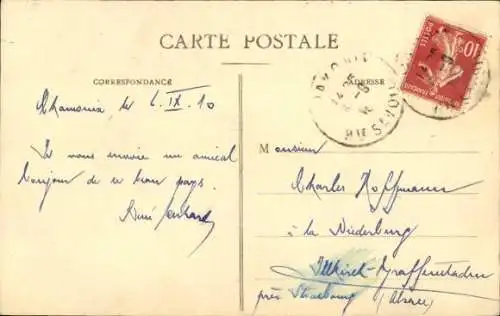 CARTE POSTALE
CORRESPONDANCE
ADRESSE
Chamonix, le 6. IX. 10
Je vous envoie un amical
bonjour de ce beau pays.
René
10
POSTES
Monsieur
Charles Hoffmann
à la Niederburg
Illkirch-Graffenstaden
près Strasbourg (Alsace)